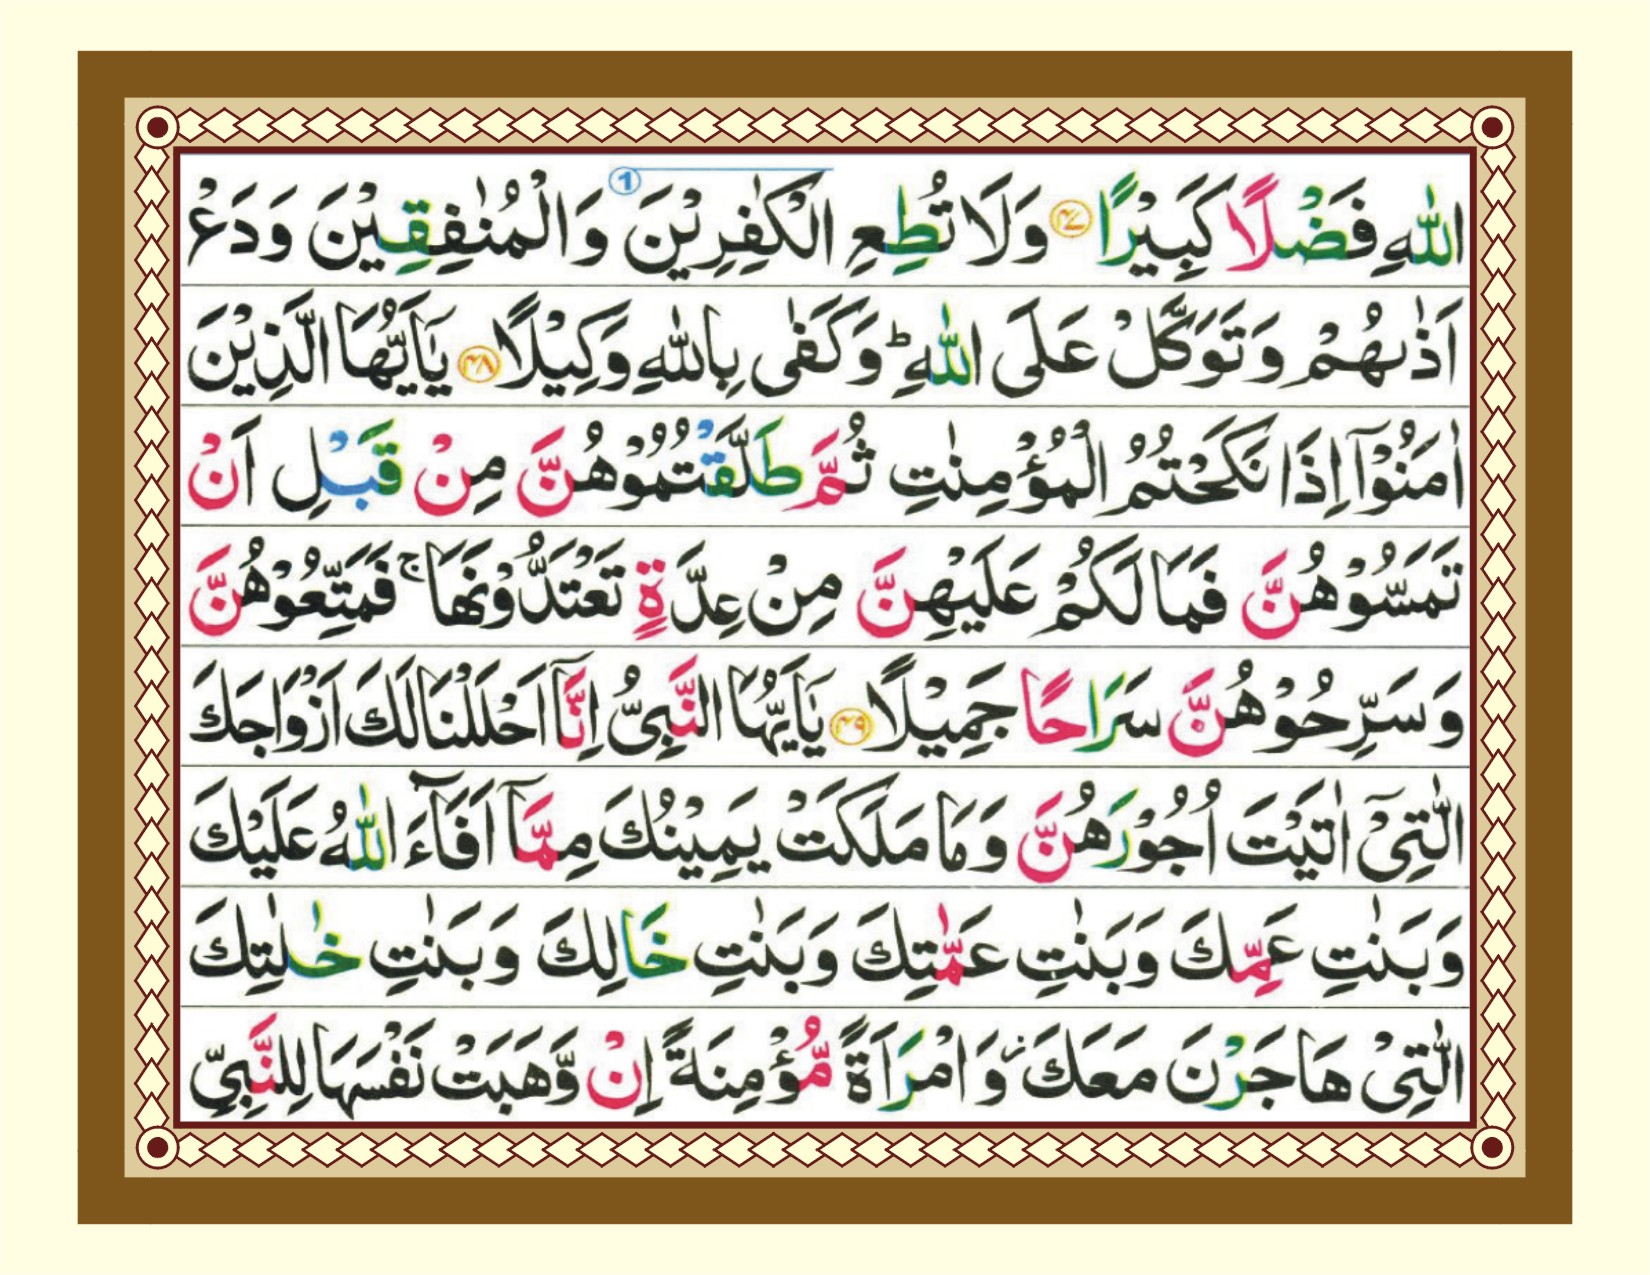 اللّٰهِ فَضْلًا كَبِيْرًا ﴿۴۷﴾ وَلَا تُطِعِ الْكٰفِرِيْنَ ① وَالْمُنٰفِقِيْنَ وَدَعْ
اَذٰىهُمْ وَتَوَكَّلْ عَلَى اللّٰهِ ؕ وَكَفٰى بِاللّٰهِ وَكِيْلًا ﴿۴۸﴾ يٰۤاَيُّهَا الَّذِيْنَ
اٰمَنُوْۤا اِذَا نَكَحْتُمُ الْمُؤْمِنٰتِ ثُمَّ طَلَّقْتُمُوْهُنَّ مِنْ قَبْلِ اَنْ
تَمَسُّوْهُنَّ فَمَا لَكُمْ عَلَيْهِنَّ مِنْ عِدَّةٍ تَعْتَدُّوْنَهَا ۚ فَمَتِّعُوْهُنَّ
وَسَرِّحُوْهُنَّ سَرَاحًا جَمِيْلًا ﴿۴۹﴾ يٰۤاَيُّهَا النَّبِىُّ اِنَّاۤ اَحْلَلْنَا لَكَ اَزْوَاجَكَ
الّٰتِىْۤ اٰتَيْتَ اُجُوْرَهُنَّ وَمَا مَلَكَتْ يَمِيْنُكَ مِمَّاۤ اَفَآءَ اللّٰهُ عَلَيْكَ
وَبَنٰتِ عَمِّكَ وَبَنٰتِ عَمّٰتِكَ وَبَنٰتِ خَالِكَ وَبَنٰتِ خٰلٰتِكَ
الّٰتِىْ هَاجَرْنَ مَعَكَ ؗ وَامْرَاَةً مُّؤْمِنَةً اِنْ وَّهَبَتْ نَفْسَهَا لِلنَّبِىِّ